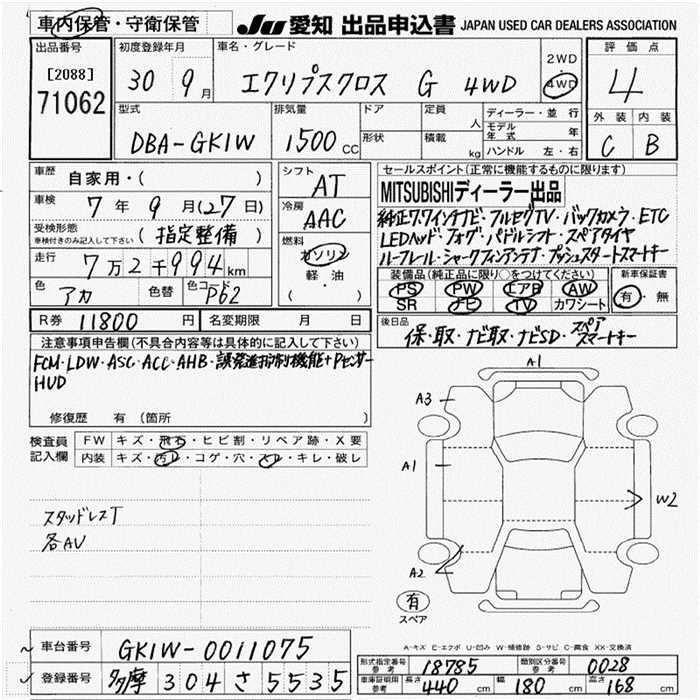 車内保管・守衛保管 JU 愛知 出品申込書 JAPAN USED CAR DEALERS ASSOCIATION
出品番号 [2088] 71062
初度登録年月 30 9月
車名・グレード エクリプスクロス G 4WD
2WD 4WD
評価点 4
外装 内装
C B
型式 DBA-GK1W
排気量 1500cc
ドア 形状
定員 人
積載 kg
ディーラー・並行
モデル年式 年
ハンドル 左・右
車歴 自家用・( )
車検 7年9月(27日)
受検形態 車検付きのみ記入して下さい (指定整備)
走行 7万2千994km
色 アカ 色替 色コード P62
シフト AT
冷房 AAC
燃料 ガソリン 軽油 ( )
セールスポイント(正常に機能するものに限ります)
MITSUBISHIディーラー出品
純正7.7インチナビ・フルセグTV・バックカメラ・ETC
LEDヘッド・フォグ・パドルシフト・スペアタイヤ
ルーフレール・シャークフィンアンテナ・プッシュスタートスマートキー
装備品(純正品に限り○をつけてください) 新車保証書
PS PW エアB AW 有・無
SR ナビ TV カワシート
R券 11800円 名変期限 月 日
後日品 保・取・ナビ取・ナビSD・スペアスマートキー
注意事項申告欄(不具合内容等は具体的に記入して下さい)
FCM・LDW・ASC・ACC・AHB・誤発進抑制機能+Pセンサー
HUD
修復歴 有(箇所 )
検査員記入欄 FW キズ・飛石・ヒビ割・リペア跡・X要
内装 キズ・汚レ・コゲ・穴・スレ・キレ・破レ
スタッドレスT
各AU
A1
A3
A1
W2
A2
有
スペア
A-キズ E-エクボ U-凹み W-補修跡 S-サビ C-腐食 XX-交換済
車台番号 GK1W-0011075
登録番号 多摩 304 さ 5535
形式指定番号 参考 18785 類別区分番号 参考 0028
車庫証明用 参考 長さ 440cm 幅 180cm 高さ 168cm